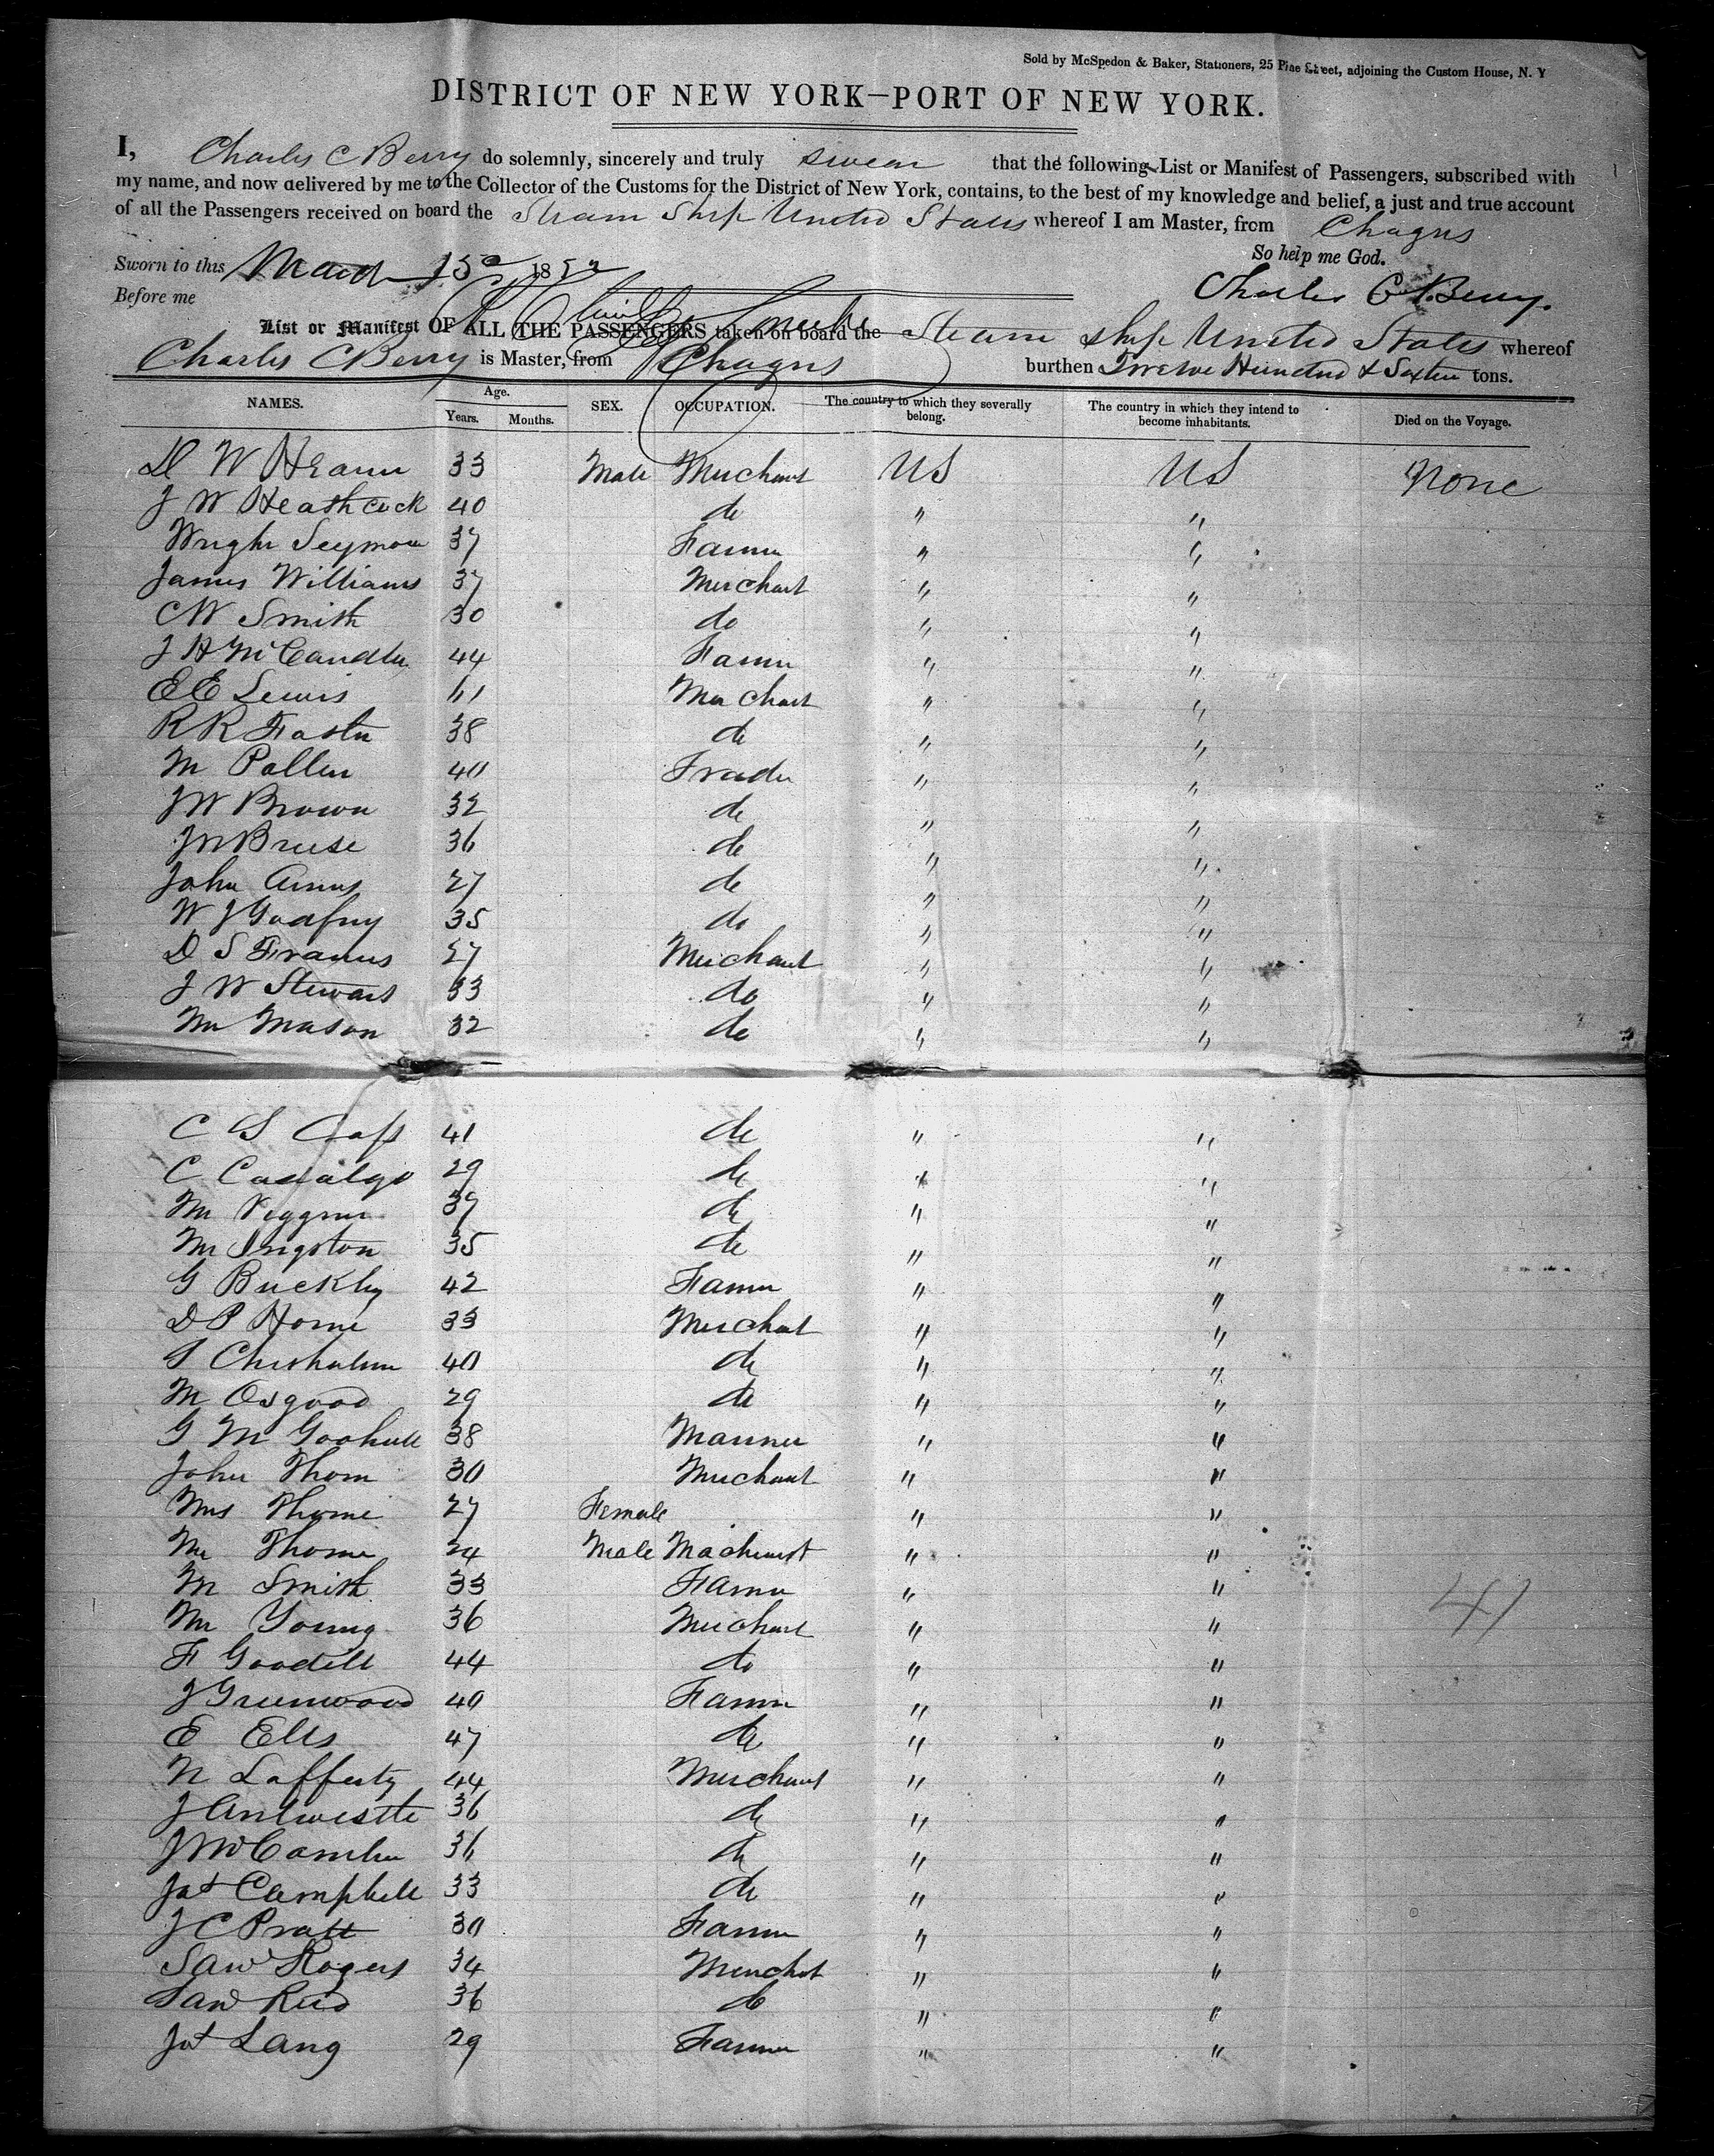 Sold by McSpedon & Baker, Stationers, 25 Pine Street, adjoining the Custom House, N. Y
DISTRICT OF NEW YORK—PORT OF NEW YORK.
I, Charles C Berry do solemnly, sincerely and truly swear that the following List or Manifest of Passengers, subscribed with
my name, and now delivered by me to the Collector of the Customs for the District of New York, contains, to the best of my knowledge and belief, a just and true account
of all the Passengers received on board the Steam Ship United States whereof I am Master, from Chagres
So help me God.
Sworn to this March 15 1852
Charles C Berry.
Before me
List or Manifest OF ALL THE PASSENGERS taken on board the Steam Ship United States whereof
Charles C Berry is Master, from Chagres burthen Twelve Hundred & Sixteen tons.
NAMES. Age. Years. Months. SEX. OCCUPATION. The country to which they severally belong. The country in which they intend to become inhabitants. Died on the Voyage.
D W Hearn 33 Male Merchant US US None
J W Heathcock 40 do " "
Wright Seymour 37 Farmer " "
James Williams 37 Merchant " "
C W Smith 30 do " "
J H McCandles 44 Farmer " "
E E Lewis 41 Merchant " "
R R Foster 38 do " "
M Pollen 40 Trader " "
J W Brown 32 do " "
J W Bruse 36 do " "
John 27 do " "
W J Godfrey 35 do " "
D S Francis 27 Merchant " "
J W Stewart 33 do " "
Mr Mason 32 do " "
C S 41 do " "
C 29 do " "
Mr 37 do " "
Mr 35 do " "
G Buckley 42 Farmer " "
D P Horne 33 Merchant " "
S Chisholm 40 do " "
M Osgood 29 do " "
G M 38 Mariner " "
John Thom 30 Merchant " "
Mrs Thorne 27 Female " "
Mr Thorne 24 Male Machinist " "
M Smith 33 Farmer " "
Mr Young 36 Merchant " "
41
F Goodell 44 do " "
J Greenwood 40 Farmer " "
E Ells 47 do " "
N Lafferty 44 Merchant " "
J Entwistle 36 do " "
J 36 do " "
Jas Campbell 33 do " "
J C Pratt 30 Farmer " "
Saml Rogers 34 Merchant " "
Saml Reed 36 do " "
Jas Lang 29 Farmer " "